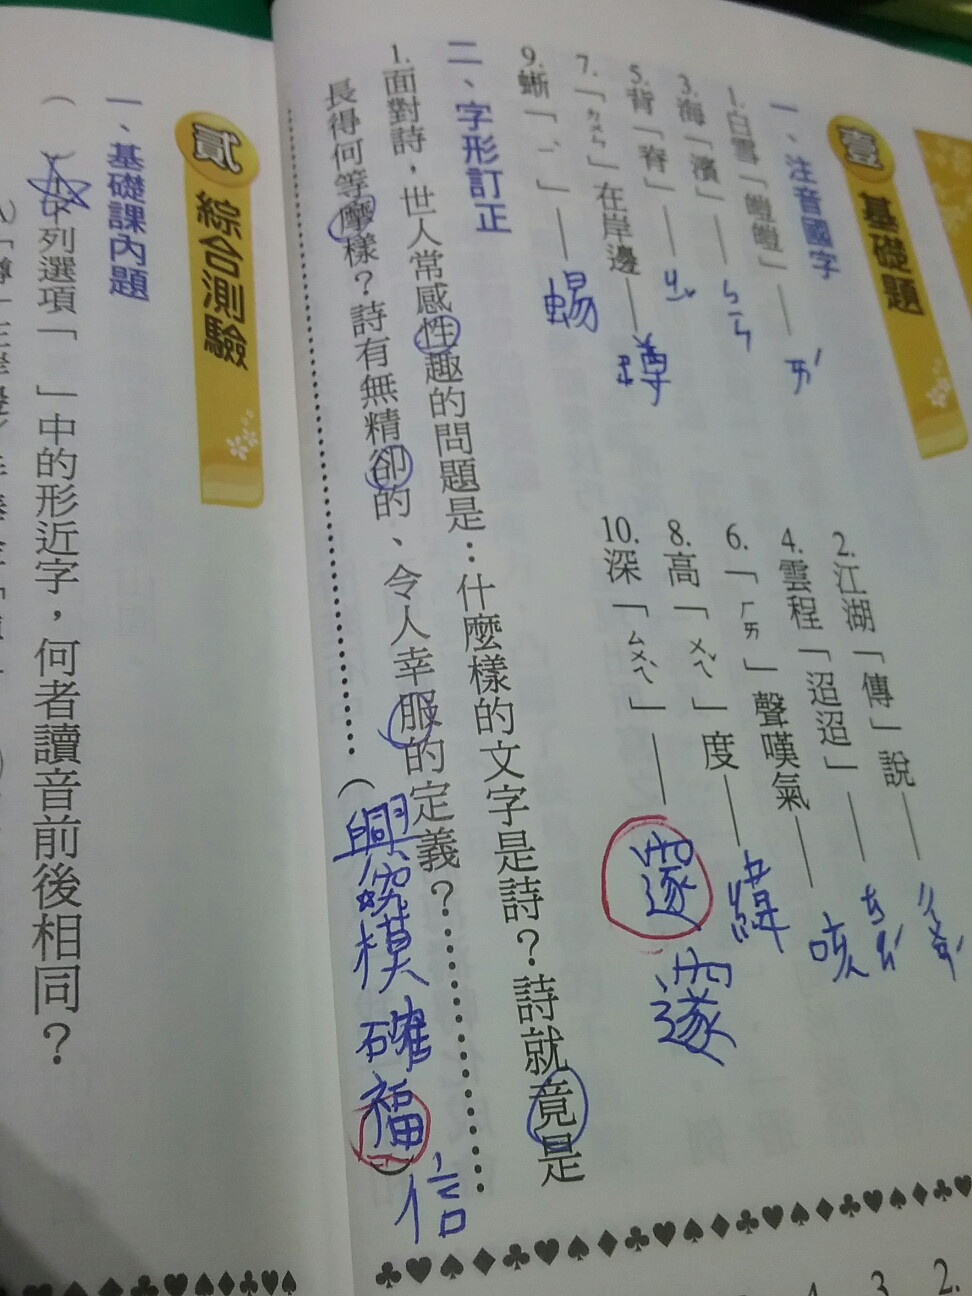 壹 基礎題
一、注音國字
1.白雪「皚皚」—ㄞˊ
2.江湖「傳」說—
3.海「濱」—ㄅㄣ
4.雲程「迢迢」—
5.背「脊」—
6.「ㄏㄞ」聲嘆氣—咳
7.「ㄉㄨㄣ」在岸邊—蹲
8.高「ㄨㄟˇ」度—緯
9.蜥「ㄧˋ」—蜴
10.深「ㄙㄨㄟˋ」—邃
二、字形訂正
1.面對詩，世人常感性趣的問題是：什麼樣的文字是詩？詩就竟是
長得何等摩樣？詩有無精卻的、令人幸服的定義？
（興究模確福）信
貳 綜合測驗
一、基礎課內題
（ ）下列選項「 」中的形近字，何者讀音前後相同？